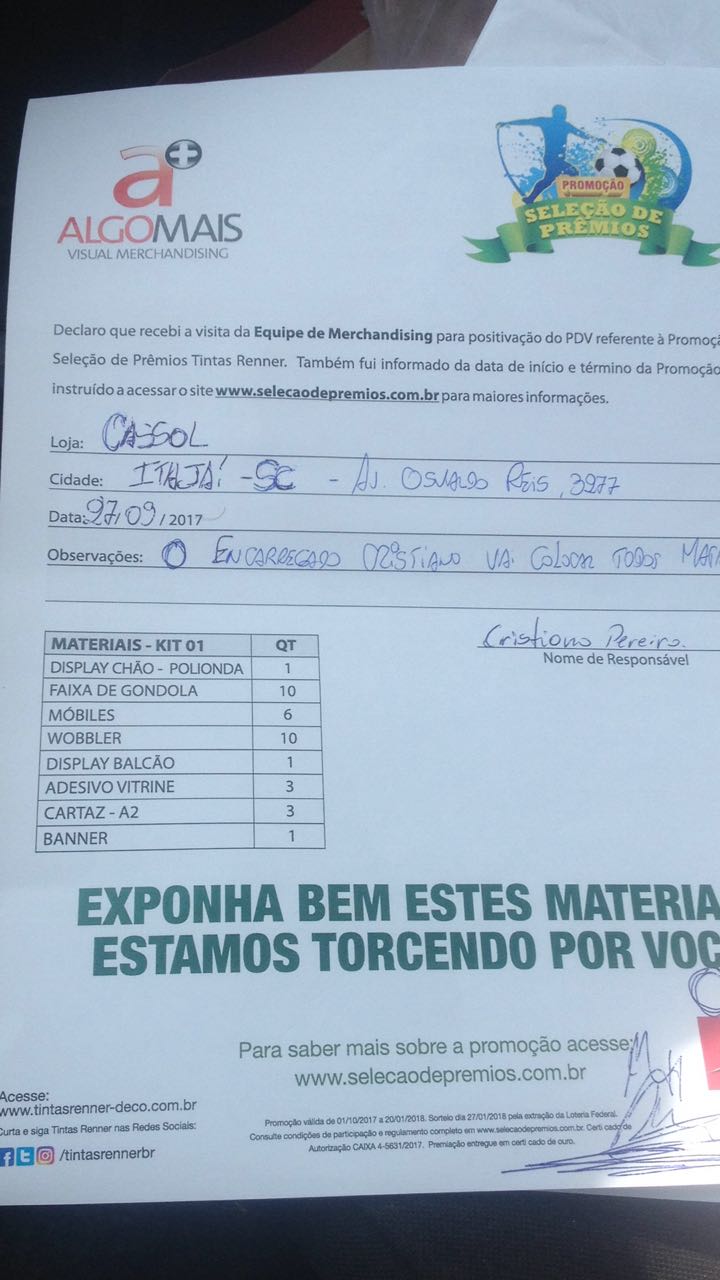 a+
ALGOMAIS
VISUAL MERCHANDISING
PROMOÇÃO
SELEÇÃO DE
PRÊMIOS
Declaro que recebi a visita da Equipe de Merchandising para positivação do PDV referente à Promoçã
Seleção de Prêmios Tintas Renner. Também fui informado da data de início e término da Promoção
instruído a acessar o site www.selecaodepremios.com.br para maiores informações.
Loja: CASSOL
Cidade: ITAJAÍ - SC - AV. OSVALDO REIS, 3277
Data: 27/09/2017
Observações: O ENCARREGADO CRISTIANO VAI COLOCAR TODOS MAT
Cristiano Pereira.
Nome de Responsável
MATERIAIS - KIT 01 QT
DISPLAY CHÃO - POLIONDA 1
FAIXA DE GONDOLA 10
MÓBILES 6
WOBBLER 10
DISPLAY BALCÃO 1
ADESIVO VITRINE 3
CARTAZ - A2 3
BANNER 1
EXPONHA BEM ESTES MATERIA
ESTAMOS TORCENDO POR VOC
Para saber mais sobre a promoção acesse:
www.selecaodepremios.com.br
Acesse:
www.tintasrenner-deco.com.br
Curta e siga Tintas Renner nas Redes Sociais:
/tintasrennerbr
Promoção válida de 01/10/2017 a 20/01/2018. Sorteio dia 27/01/2018 pela extração da Loteria Federal.
Consulte condições de participação e regulamento completo em www.selecaodepremios.com.br. Certi cado de
Autorização CAIXA 4-5631/2017. Premiação entregue em certi cado de ouro.